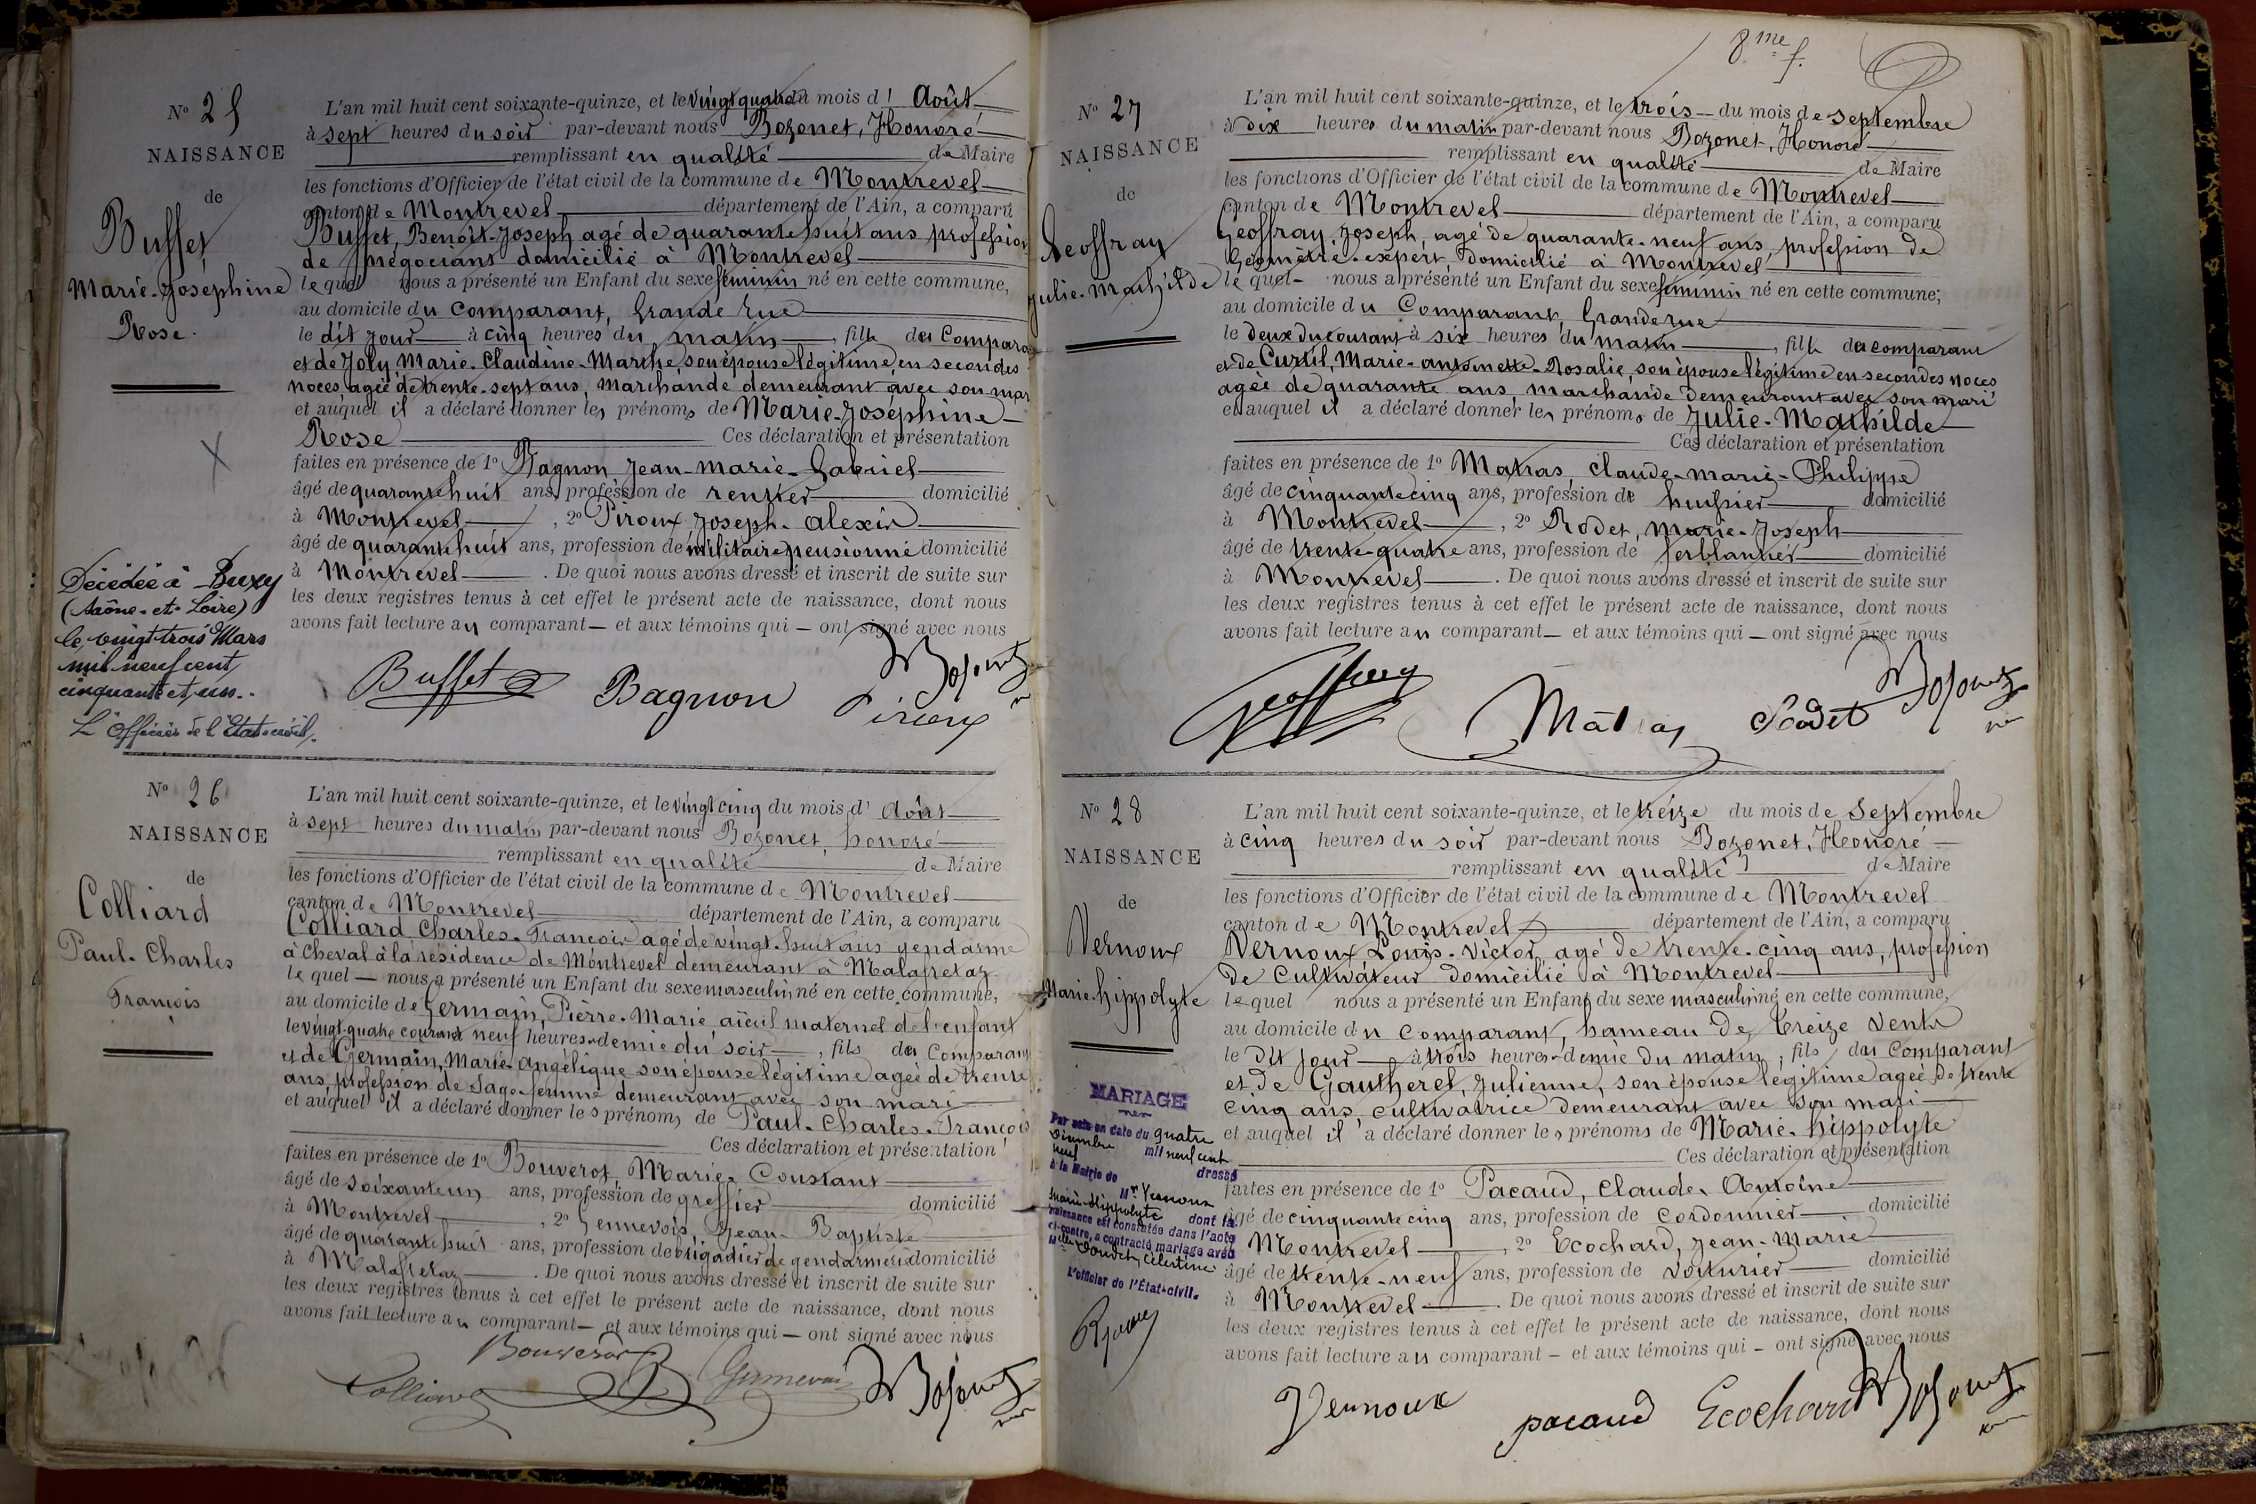 8me f.
N° 25
NAISSANCE
de
Buffet
Marie-Joséphine
Rose.
L'an mil huit cent soixante-quinze, et le vingt quatre du mois d' Août
à sept heures du soir par-devant nous Bozonet, Honoré
remplissant en qualité de Maire
les fonctions d'Officier de l'état civil de la commune de Montrevel
canton de Montrevel département de l'Ain, a comparu
Buffet, Benoît-Joseph agé de quarante huit ans profession
de négociant domicilié à Montrevel
le quel nous a présenté un Enfant du sexe féminin né en cette commune,
au domicile du Comparant, Grande rue
le dit jour à cinq heures du matin, fille du Comparant
et de Joly, Marie-Claudine-Marthe, son épouse légitime en secondes
noces, agée de trente-sept ans, marchande demeurant avec son mari
et auquel il a déclaré donner les prénoms de Marie-Joséphine
Rose Ces déclaration et présentation
faites en présence de 1° Bagnon Jean-Marie-Gabriel
âgé de quarante huit ans, profession de rentier domicilié
à Montrevel, 2° Piroux Joseph-Alexis
âgé de quarante huit ans, profession de militaire pensionné domicilié
à Montrevel. De quoi nous avons dressé et inscrit de suite sur
les deux registres tenus à cet effet le présent acte de naissance, dont nous
avons fait lecture au comparant — et aux témoins qui — ont signé avec nous
Décédée à Buxy
(Saône-et-Loire)
le vingt trois Mars
mil neuf cent
cinquante et un.
L'Officier de l'Etat-civil.
Buffet Bagnon Piroux Bozonet
N° 26
NAISSANCE
de
Colliard
Paul-Charles
François
L'an mil huit cent soixante-quinze, et le vingt cinq du mois d' Août
à sept heures du matin par-devant nous Bozonet, honoré
remplissant en qualité de Maire
les fonctions d'Officier de l'état civil de la commune de Montrevel
canton de Montrevel département de l'Ain, a comparu
Colliard Charles-François agé de vingt-huit ans gendarme
à cheval à la résidence de Montrevel demeurant à Malafretaz
le quel — nous a présenté un Enfant du sexe masculin né en cette commune,
au domicile de Germain, Pierre-Marie aïeul maternel de l'enfant
le vingt-quatre courant neuf heures-demie du soir, fils du Comparant
et de Germain, Marie-Angélique son épouse légitime agée de trente
ans, profession de Sage-femme demeurant avec son mari
et auquel il a déclaré donner les prénoms de Paul-Charles-François
Ces déclaration et présentation
faites en présence de 1° Bouverot, Marie-Constant
âgé de soixante un ans, profession de greffier domicilié
à Montrevel, 2° Gennevois, Jean-Baptiste
âgé de quarante huit ans, profession de brigadier de gendarmerie domicilié
à Malafretaz. De quoi nous avons dressé et inscrit de suite sur
les deux registres tenus à cet effet le présent acte de naissance, dont nous
avons fait lecture au comparant — et aux témoins qui — ont signé avec nous
Bouverot
Colliard Bozonet
N° 27
NAISSANCE
de
Geoffray
Julie-Mathilde
L'an mil huit cent soixante-quinze, et le trois du mois de Septembre
à dix heures du matin par-devant nous Bozonet, Honoré
remplissant en qualité de Maire
les fonctions d'Officier de l'état civil de la commune de Montrevel
canton de Montrevel département de l'Ain, a comparu
Geoffray, Joseph, agé de quarante-neuf ans, profession de
Géomètre-expert domicilié à Montrevel
le quel — nous a présenté un Enfant du sexe féminin né en cette commune;
au domicile du Comparant, Grande rue
le deux du courant à six heures du matin, fille du comparant
et de Curtil, Marie-antoinette-Rosalie, son épouse légitime en secondes noces
agée de quarante ans, marchande demeurant avec son mari
et auquel il a déclaré donner les prénoms de Julie-Mathilde
Ces déclaration et présentation
faites en présence de 1° Matras, Claude-Marie-Philippe
âgé de cinquante cinq ans, profession de huissier domicilié
à Montrevel, 2° Rodet, Marie-Joseph
âgé de trente-quatre ans, profession de ferblantier domicilié
à Montrevel. De quoi nous avons dressé et inscrit de suite sur
les deux registres tenus à cet effet le présent acte de naissance, dont nous
avons fait lecture au comparant — et aux témoins qui — ont signé avec nous
Geoffray Matras Rodet Bozonet
N° 28
NAISSANCE
de
Vernoux
Marie-hippolyte
L'an mil huit cent soixante-quinze, et le treize du mois de Septembre
à cinq heures du soir par-devant nous Bozonet, Honoré
remplissant en qualité de Maire
les fonctions d'Officier de l'état civil de la commune de Montrevel
canton de Montrevel département de l'Ain, a comparu
Vernoux Louis-Victor, agé de trente-cinq ans, profession
de Cultivateur domicilié à Montrevel
le quel nous a présenté un Enfant du sexe masculin né en cette commune,
au domicile du Comparant, hameau de Treize Vents
le dit jour à trois heures-demie du matin, fils du Comparant
et de Gautheret, Julienne, son épouse légitime agée de trente
cinq ans, cultivatrice demeurant avec son mari
et auquel il a déclaré donner les prénoms de Marie-hippolyte
Ces déclaration et présentation
faites en présence de 1° Pacaud, Claude-Antoine
âgé de cinquante cinq ans, profession de cordonnier domicilié
Montrevel, 2° Ecochard, Jean-Marie
âgé de trente-neuf ans, profession de voiturier domicilié
à Montrevel. De quoi nous avons dressé et inscrit de suite sur
les deux registres tenus à cet effet le présent acte de naissance, dont nous
avons fait lecture au comparant — et aux témoins qui — ont signé avec nous
MARIAGE
Par acte en date du quatre
Décembre mil neuf cent
neuf dressé
à la Mairie de
Mr Vernoux
Marie-Hippolyte dont la
naissance est constatée dans l'acte
ci-contre, a contracté mariage avec
Mlle Célestine
L'officier de l'État-civil.
Vernoux pacaud Ecochard Bozonet